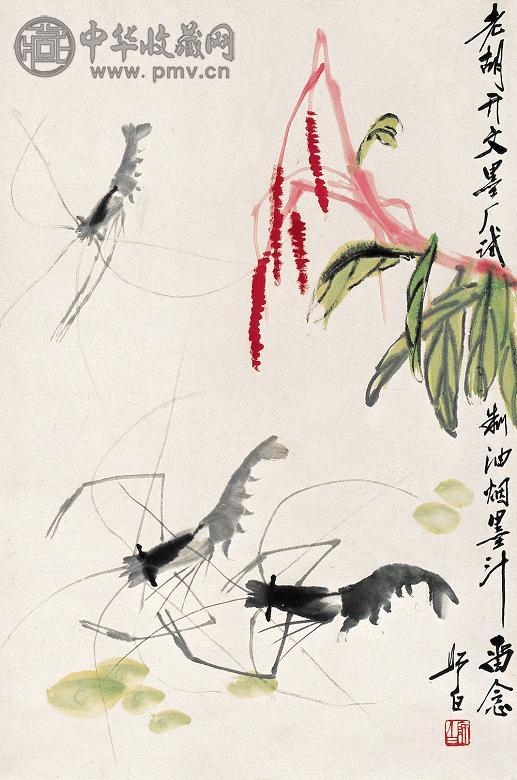 中华收藏网
www.pmv.cn
老胡开文墨厂试制油烟墨汁留念
师白